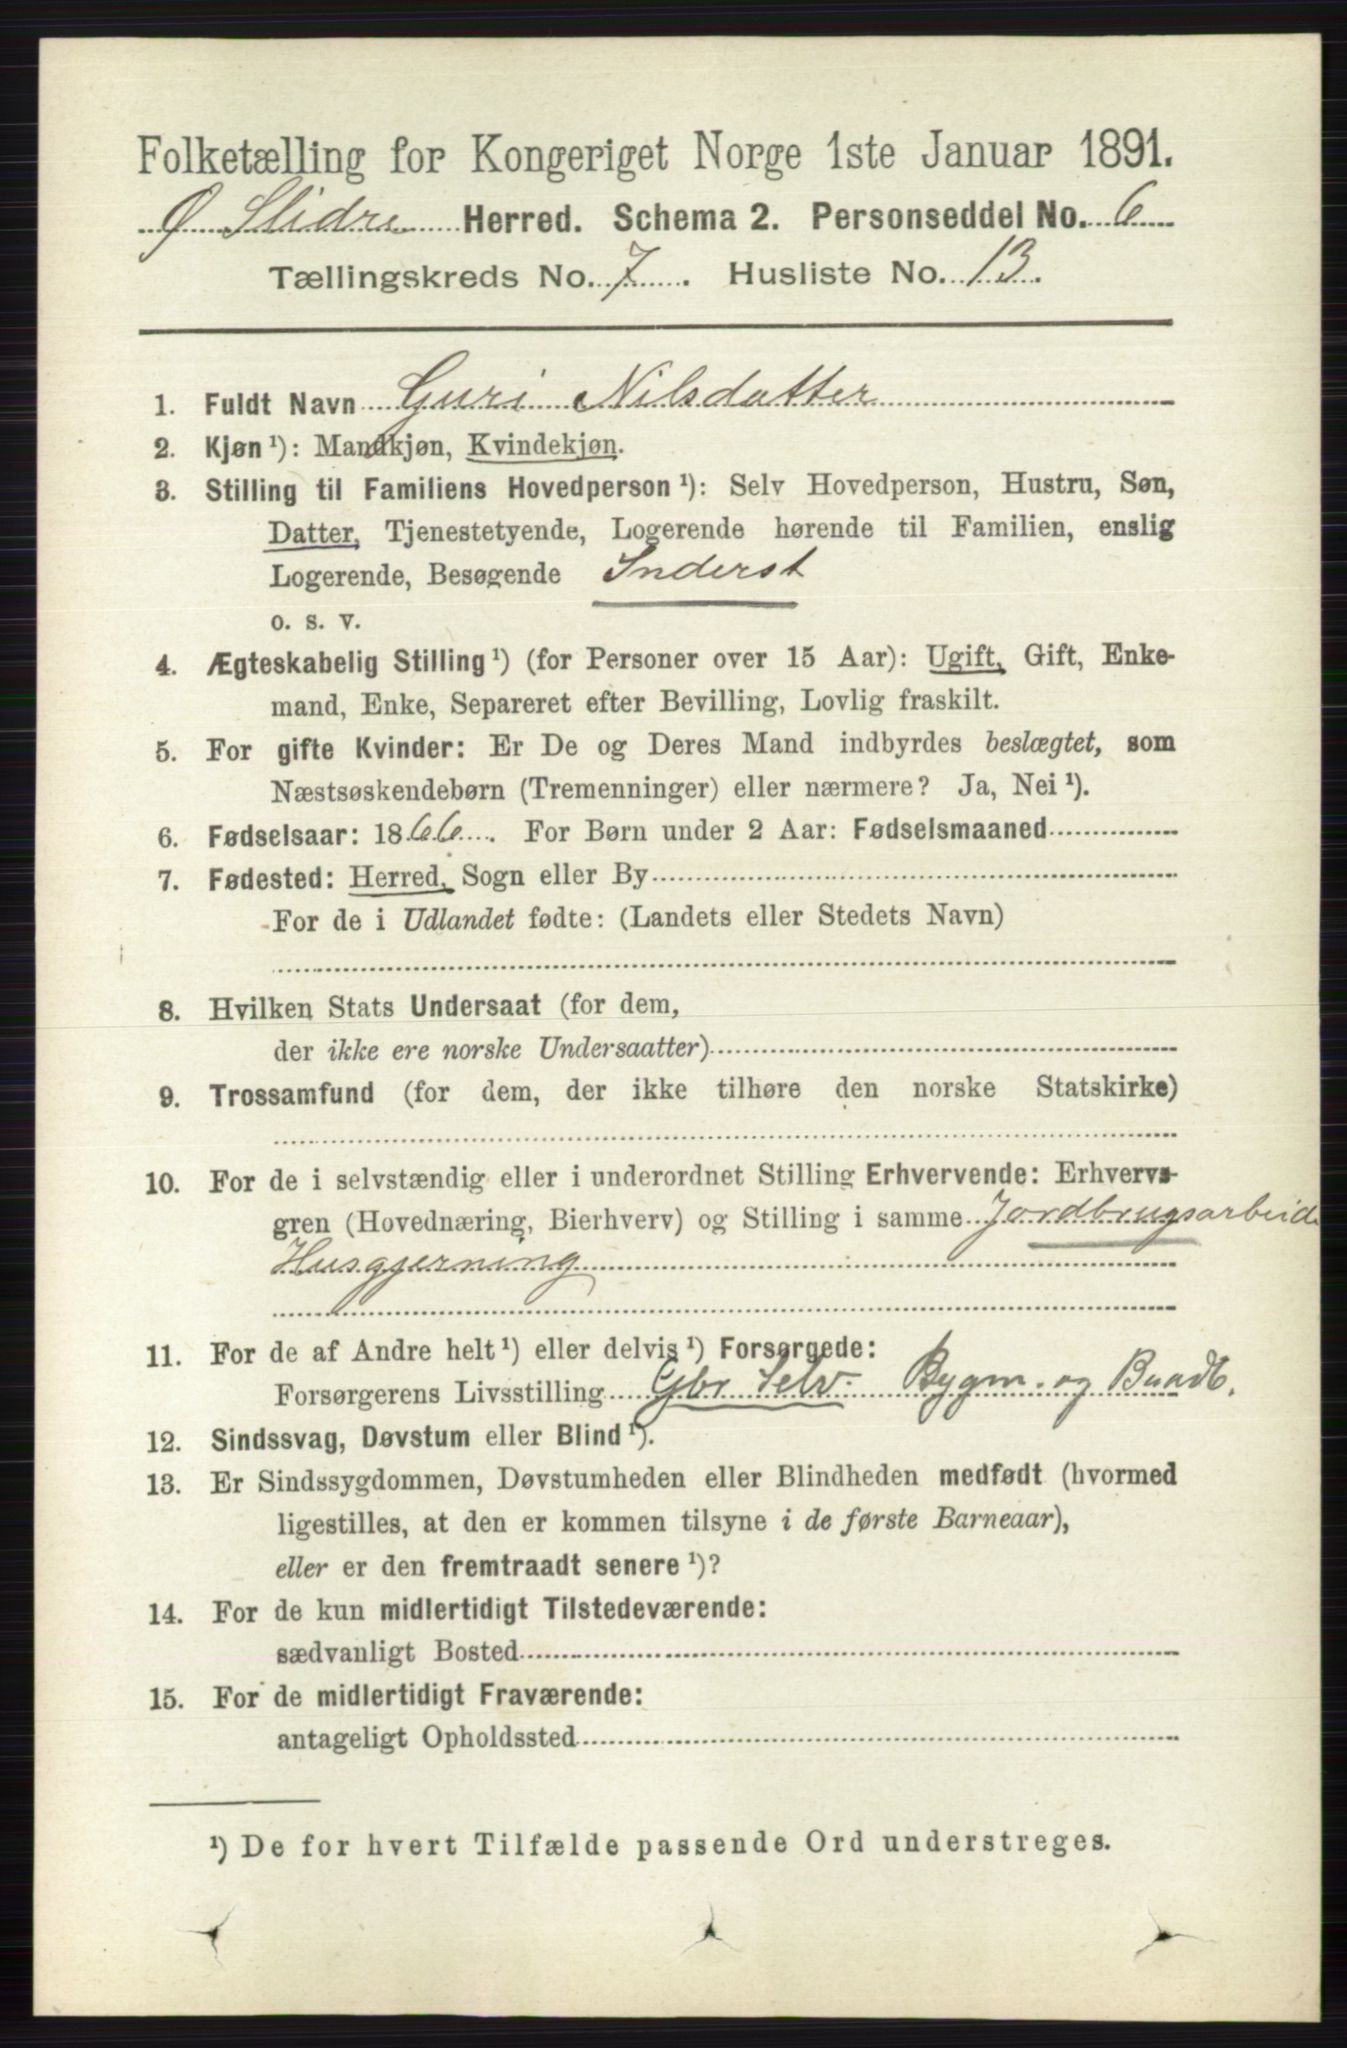 Folketælling for Kongeriget Norge 1ste Januar 1891.
Ø Slidre Herred. Schema 2. Personseddel No. 6
Tællingskreds No. 7. Husliste No. 13.
1. Fuldt Navn Guri Nilsdatter
2. Kjøn¹): Mandkjøn, Kvindekjøn.
3. Stilling til Familiens Hovedperson¹): Selv Hovedperson, Hustru, Søn,
Datter, Tjenestetyende, Logerende hørende til Familien, enslig
Logerende, Besøgende Inderst
o. s. v.
4. Ægteskabelig Stilling¹) (for Personer over 15 Aar): Ugift, Gift, Enke-
mand, Enke, Separeret efter Bevilling, Lovlig fraskilt.
5. For gifte Kvinder: Er De og Deres Mand indbyrdes beslægtet, som
Næstsøskendebørn (Tremenninger) eller nærmere? Ja, Nei¹).
6. Fødselsaar: 1866. For Børn under 2 Aar: Fødselsmaaned
7. Fødested: Herred, Sogn eller By
For de i Udlandet fødte: (Landets eller Stedets Navn)
8. Hvilken Stats Undersaat (for dem,
der ikke ere norske Undersaatter)
9. Trossamfund (for dem, der ikke tilhøre den norske Statskirke)
10. For de i selvstændig eller i underordnet Stilling Erhvervende: Erhvervs-
gren (Hovednæring, Bierhverv) og Stilling i samme Jordbrugsarbeide
Husgjerning
11. For de af Andre helt¹) eller delvis¹) Forsørgede:
Forsørgerens Livsstilling Gbr Selv. Bygm. og
12. Sindssvag, Døvstum eller Blind¹).
13. Er Sindssygdommen, Døvstumheden eller Blindheden medfødt (hvormed
ligestilles, at den er kommen tilsyne i de første Barneaar),
eller er den fremtraadt senere¹)?
14. For de kun midlertidigt Tilstedeværende:
sædvanligt Bosted
15. For de midlertidigt Fraværende:
antageligt Opholdssted
¹) De for hvert Tilfælde passende Ord understreges.